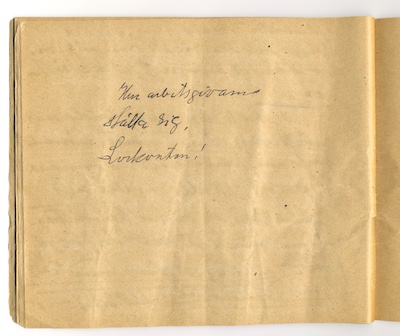 Hur arbetsgivarne
ställa sig,
Lockouten!